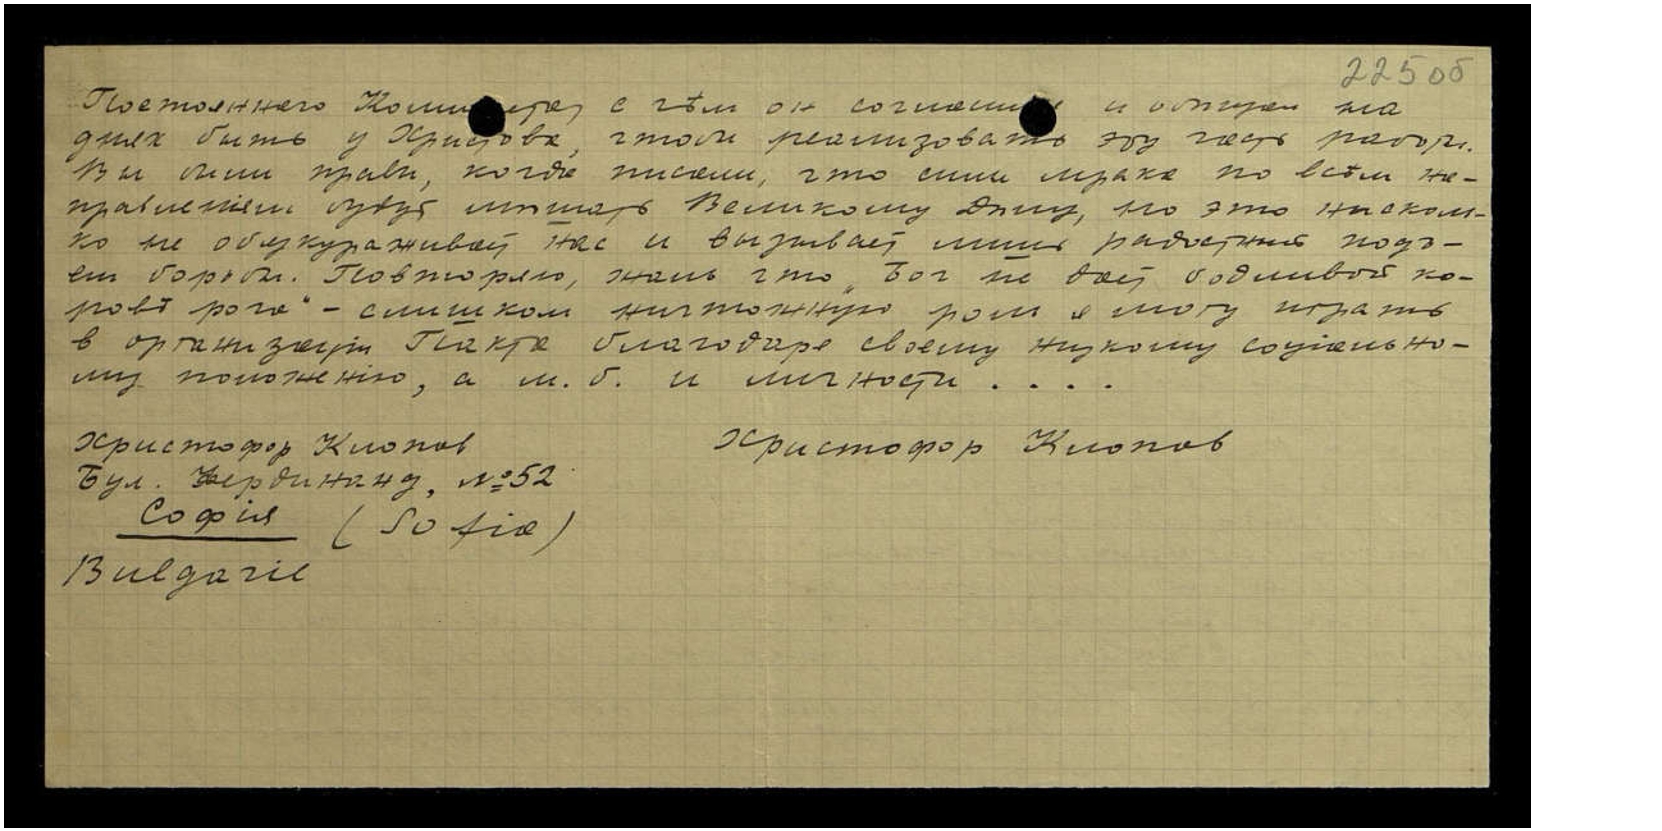 225 об
Постояннаго Комитета, с чѣм он согласился и обещал на
днях быть у Христова, чтобы реализовать эту часть работы.
Вы были правы, когда писали, что силы мрака по всѣм на-
правленіям будут мѣшать Великому Дѣлу, но это нисколь-
ко не обескураживает нас и вызывает лишь радостный подъ-
ем борьбы. Повторяю, жаль что „Бог не дает бодливой ко-
ровѣ рога" - слишком ничтожную роль я могу играть
в организаціи Пакта благодаря своему низкому соціально-
му положенію, а м. б. и личности . . . .
Христофор Клопов Христофор Клопов
Бул. Фердинанд, №52
Софія (Sofia)
Bulgarie